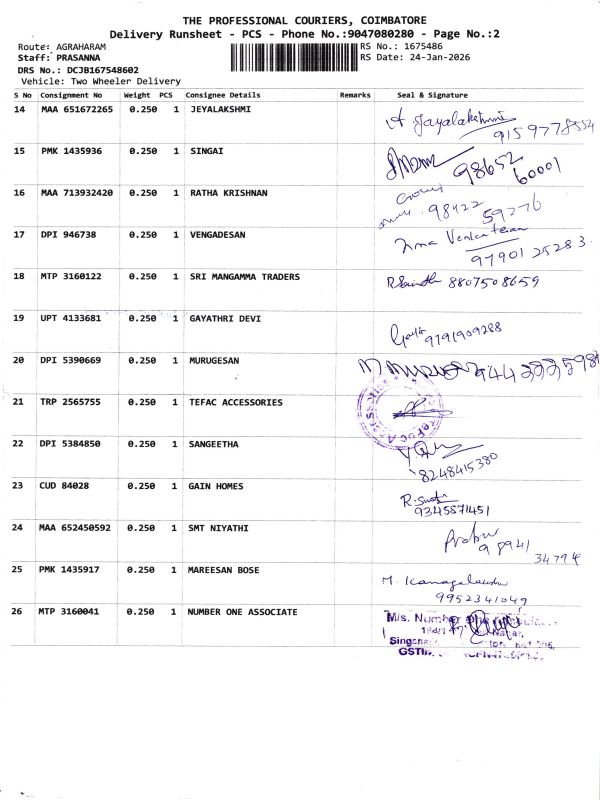 THE PROFESSIONAL COURIERS, COIMBATORE
Delivery Runsheet - PCS - Phone No.:9047080280 - Page No.:2
Route: AGRAHARAM RS No.: 1675486
Staff: PRASANNA RS Date: 24-Jan-2026
DRS No.: DCJB167548602
Vehicle: Two Wheeler Delivery
S No Consignment No Weight PCS Consignee Details Remarks Seal & Signature
14 MAA 651672265 0.250 1 JEYALAKSHMI
9159778554
15 PMK 1435936 0.250 1 SINGAI
98652
60001
16 MAA 713932420 0.250 1 RATHA KRISHNAN
98422 59276
17 DPI 946738 0.250 1 VENGADESAN
97901 25283
18 MTP 3160122 0.250 1 SRI MANGAMMA TRADERS 8807508659
19 UPT 4133681 0.250 1 GAYATHRI DEVI
9791909288
20 DPI 5390669 0.250 1 MURUGESAN
21 TRP 2565755 0.250 1 TEFAC ACCESSORIES
22 DPI 5384850 0.250 1 SANGEETHA
8248415380
23 CUD 84028 0.250 1 GAIN HOMES
9345871451
24 MAA 652450592 0.250 1 SMT NIYATHI
Prabu
98941
34794
25 PMK 1435917 0.250 1 MAREESAN BOSE
M. Kanagalakshmi
9952341049
26 MTP 3160041 0.250 1 NUMBER ONE ASSOCIATE M/s. Number